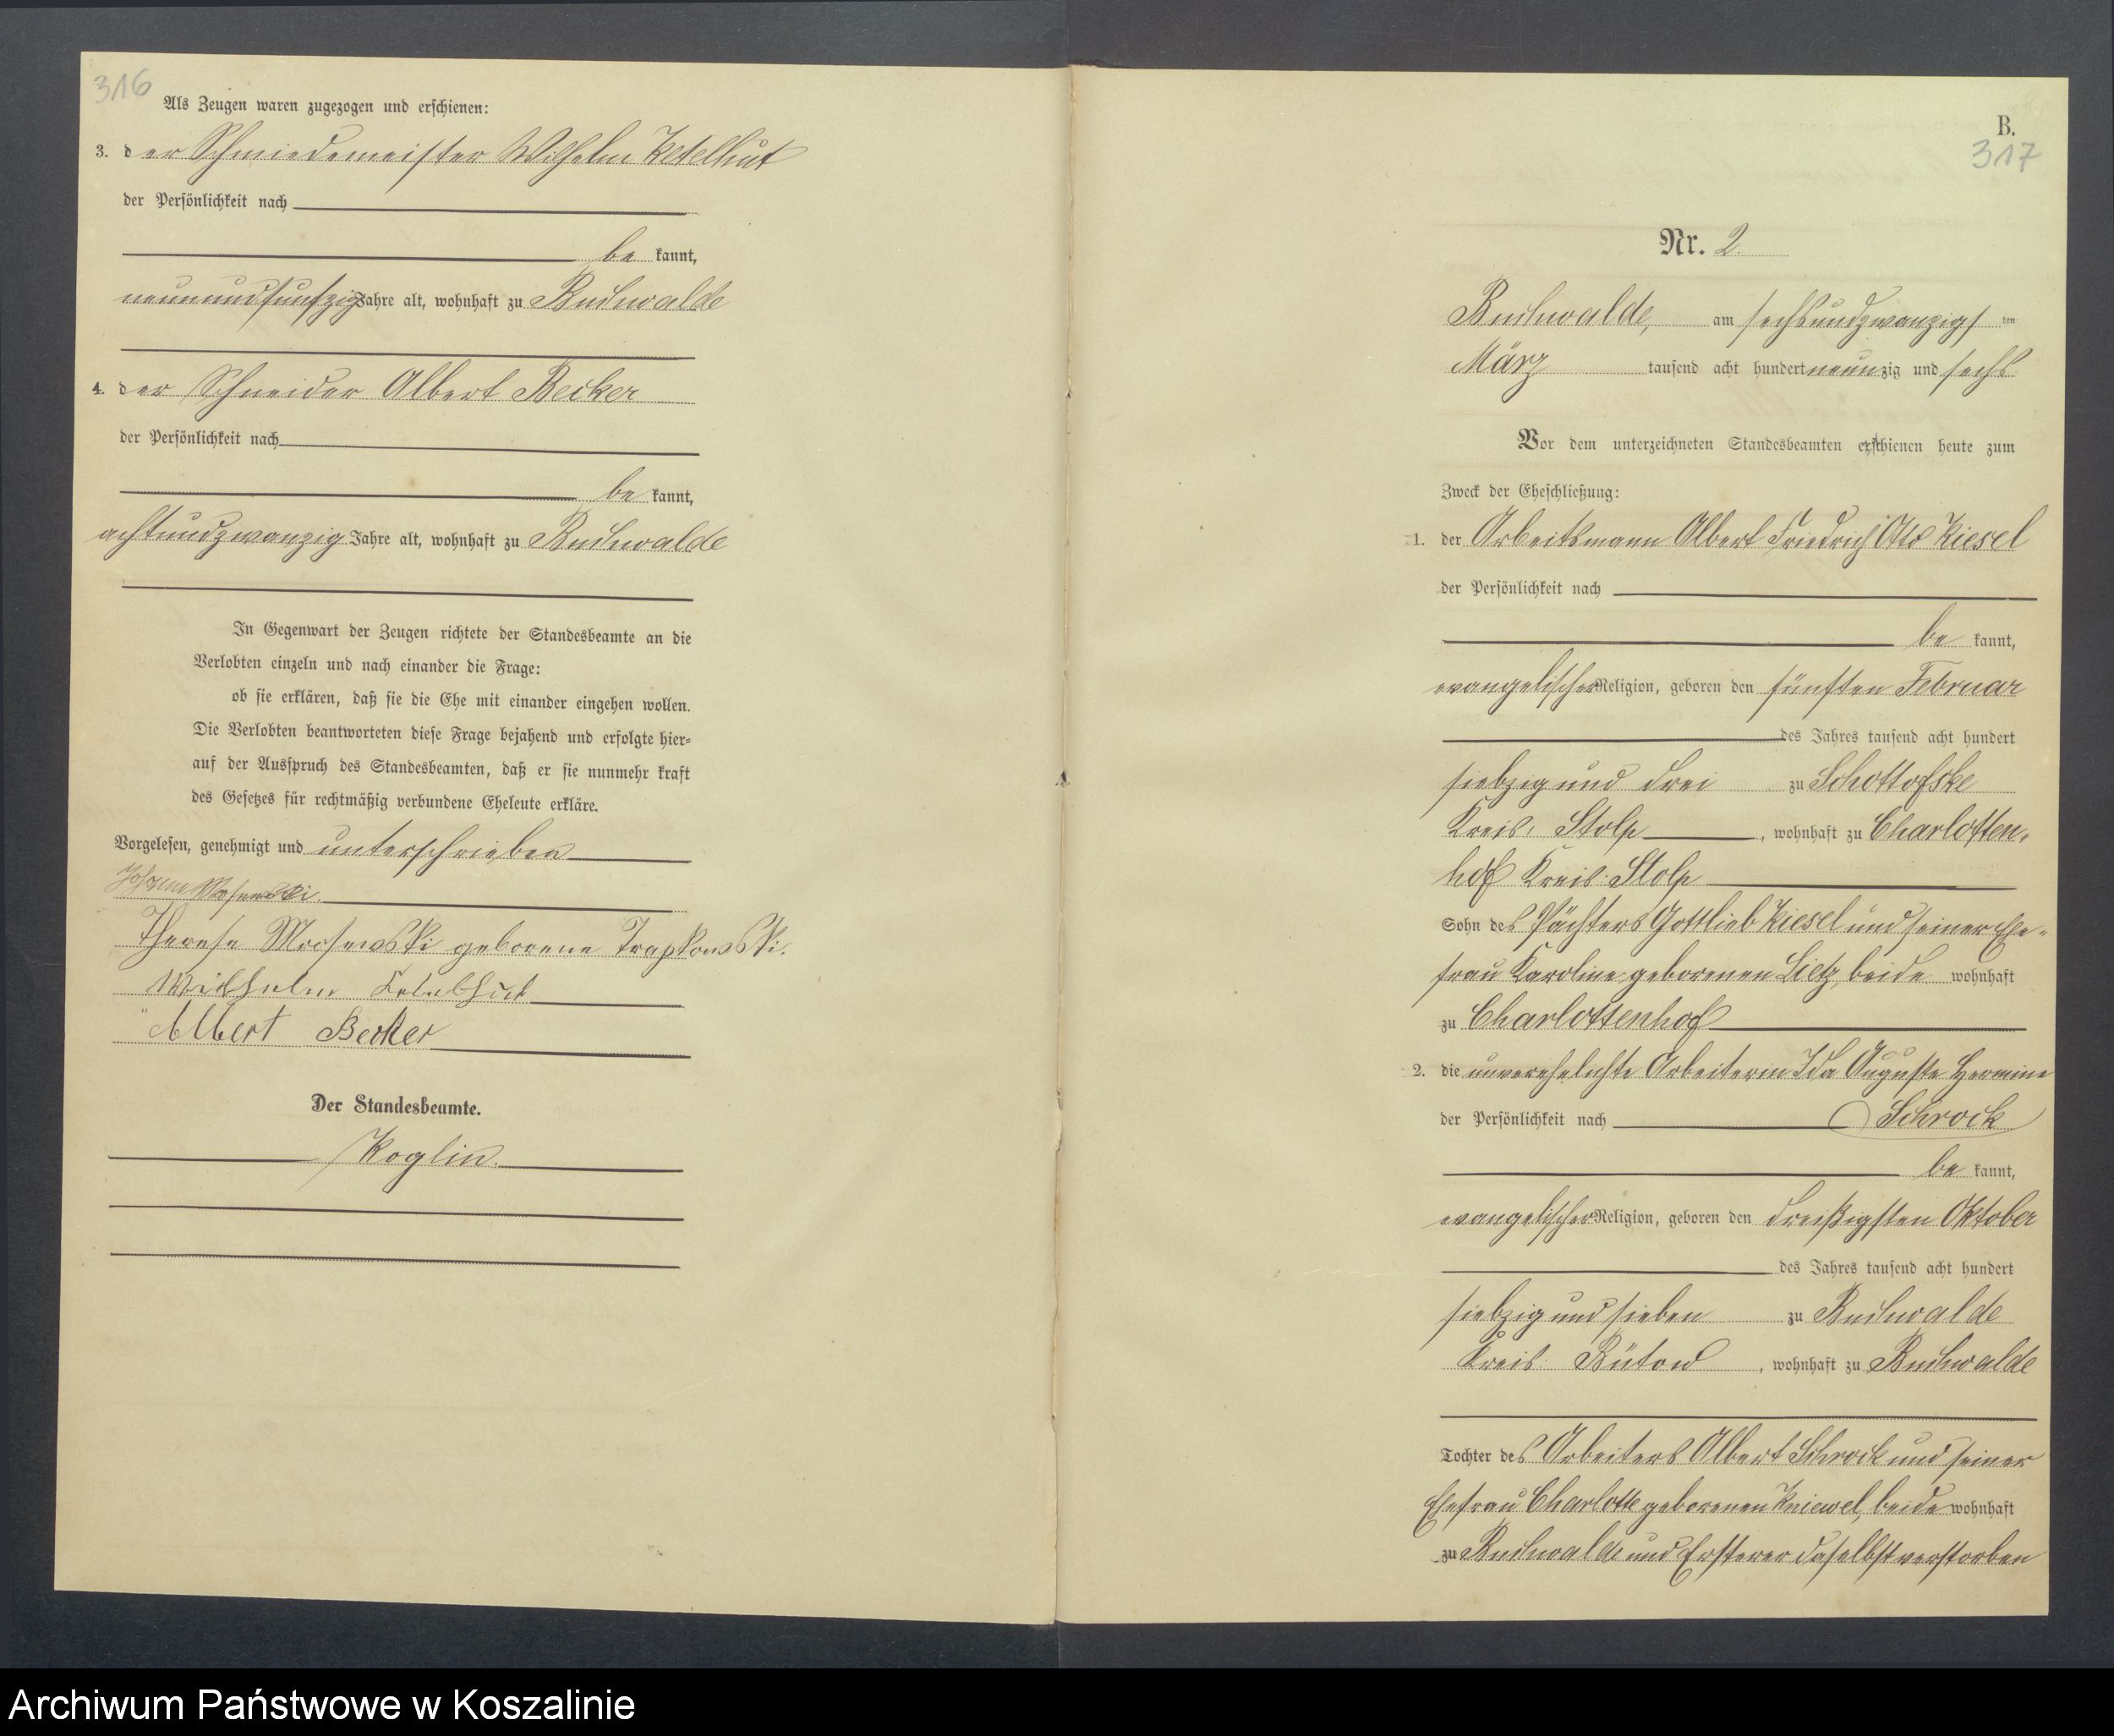 316
Als Zeugen waren zugezogen und erschienen:
3. der Schmiedemeister Wilhelm Ketelhut
der Persönlichkeit nach
be kannt,
neunundfunfzig Jahre alt, wohnhaft zu Buchwalde
4. der Schneider Albert Becker
der Persönlichkeit nach
be kannt,
achtundzwanzig Jahre alt, wohnhaft zu Buchwalde
In Gegenwart der Zeugen richtete der Standesbeamte an die
Verlobten einzeln und nach einander die Frage:
ob sie erklären, daß sie die Ehe mit einander eingehen wollen.
Die Verlobten beantworteten diese Frage bejahend und erfolgte hier-
auf der Ausspruch des Standesbeamten, daß er sie nunmehr kraft
des Gesetzes für rechtmäßig verbundene Eheleute erkläre.
Vorgelesen, genehmigt und unterschrieben
Johann
Therese Mrosewski geborene Trapkowski.
Wilhelm Ketelhut
Albert Becker
Der Standesbeamte.
Koglin.
B.
317
Nr. 2.
Buchwalde, am sechsundzwanzigs ten
März tausend acht hundert neunzig und sechs
Vor dem unterzeichneten Standesbeamten erschienen heute zum
Zweck der Eheschließung:
1. der Arbeitsmann Albert Friedrich Otto Kiesel
der Persönlichkeit nach
be kannt,
evangelischer Religion, geboren den fünften Februar
des Jahres tausend acht hundert
siebzig und drei zu Schottofske
Kreis: Stolp, wohnhaft zu Charlotten-
hof Kreis: Stolp
Sohn des Pächters Gottlieb Kiesel und seiner Ehe-
frau Karoline geborenen Lietz, beide wohnhaft
zu Charlottenhof
2. die unverehelichte Arbeiterin Ida Auguste Hermine
der Persönlichkeit nach Schrock
be kannt,
evangelischer Religion, geboren den dreißigsten Oktober
des Jahres tausend acht hundert
siebzig und sieben zu Buchwalde
Kreis: Bütow, wohnhaft zu Buchwalde
Tochter des Arbeiters Albert Schrock und seiner
Ehefrau Charlotte geborenen Kniewel, beide wohnhaft
zu Buchwalde und Ersterer daselbst verstorben
Archiwum Państwowe w Koszalinie